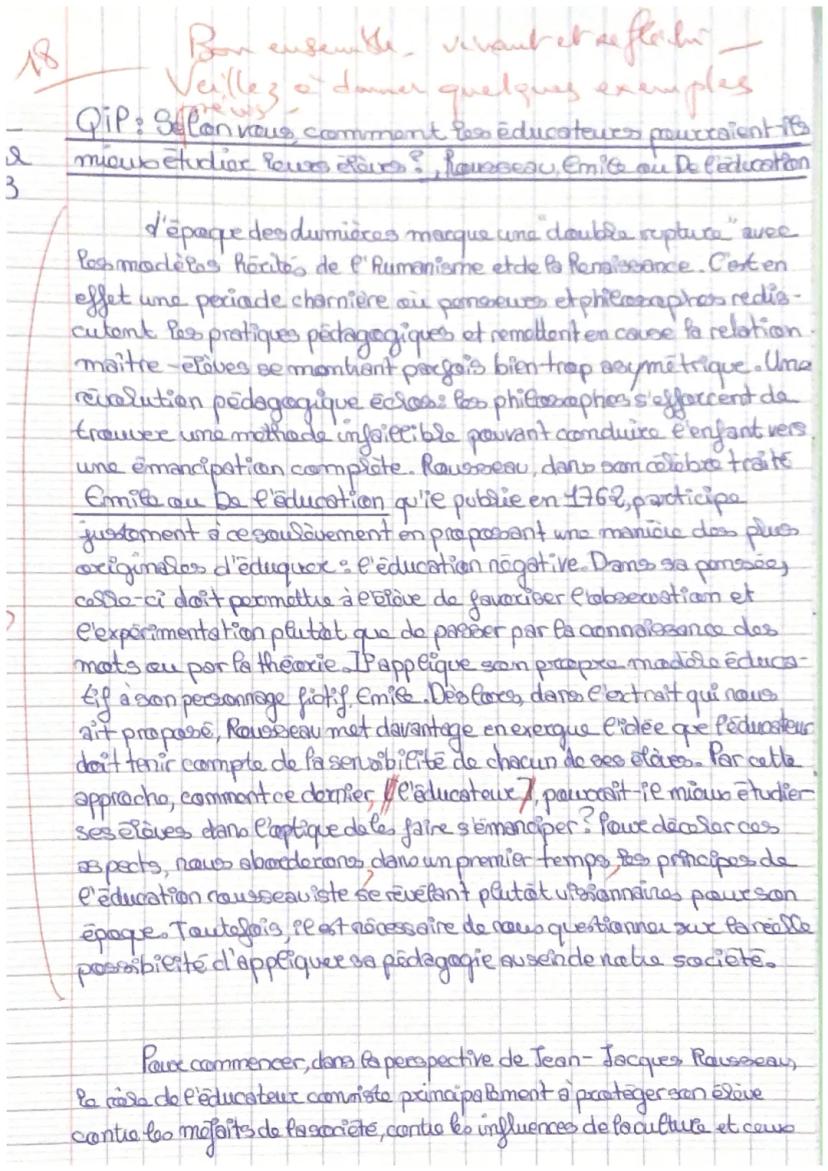 18
Bon ensemble - vivant et réfléchi -
Veillez à donner quelques exemples
précis -
QiP : Selon vous, comment les éducateurs pourraient-ils
2
mieux étudier leurs élèves ?, Rousseau, Emile ou De l'éducation
3
L'époque des lumières marque une "double rupture" avec
les modèles hérités de l'Humanisme et de la Renaissance. C'est en
effet une période charnière où penseurs et philosophes redis-
cutent les pratiques pédagogiques et remettent en cause la relation
maître-élèves se montrant parfois bien trop asymétrique. Une
révolution pédagogique éclose : les philosophes s'efforcent de
trouver une méthode infaillible pouvant conduire l'enfant vers
une émancipation complète. Rousseau, dans son célèbre traité
Emile ou De l'éducation qu'il publie en 1762, participe
justement à ce soulèvement en proposant une manière des plus
originales d'éduquer : l'éducation négative. Dans sa pensée,
celle-ci doit permettre à l'élève de favoriser l'observation et
l'expérimentation plutôt que de passer par la connaissance des
mots ou par la théorie. Il applique son propre modèle éduca-
tif à son personnage fictif, Emile. Dès lors, dans l'extrait qui nous
ait proposé, Rousseau met davantage en exergue l'idée que l'éducateur
doit tenir compte de la sensibilité de chacun de ses élèves. Par cette
approche, comment ce dernier, [l'éducateur], pourrait-il mieux étudier
ses élèves dans l'optique de les faire s'émanciper ? Pour déceler ces
aspects, nous aborderons, dans un premier temps, les principes de
l'éducation rousseauiste se révélant plutôt visionnaires pour son
époque. Toutefois, il est nécessaire de nous questionner sur la réelle
possibilité d'appliquer sa pédagogie au sein de notre société.
Pour commencer, dans la perspective de Jean-Jacques Rousseau,
le rôle de l'éducateur consiste principalement à protéger son élève
contre les méfaits de la société, contre les influences de la culture et ceux